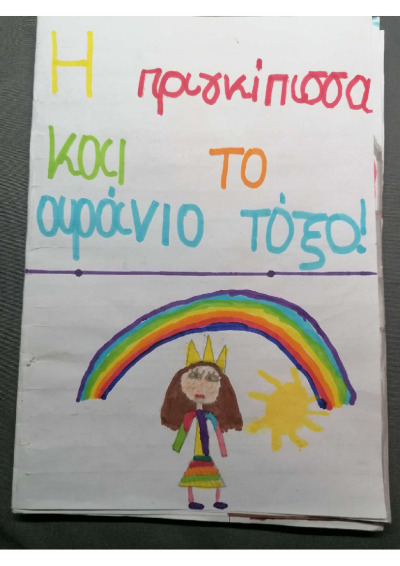 Η πριγκίπισσα
και το
ουράνιο τόξο!